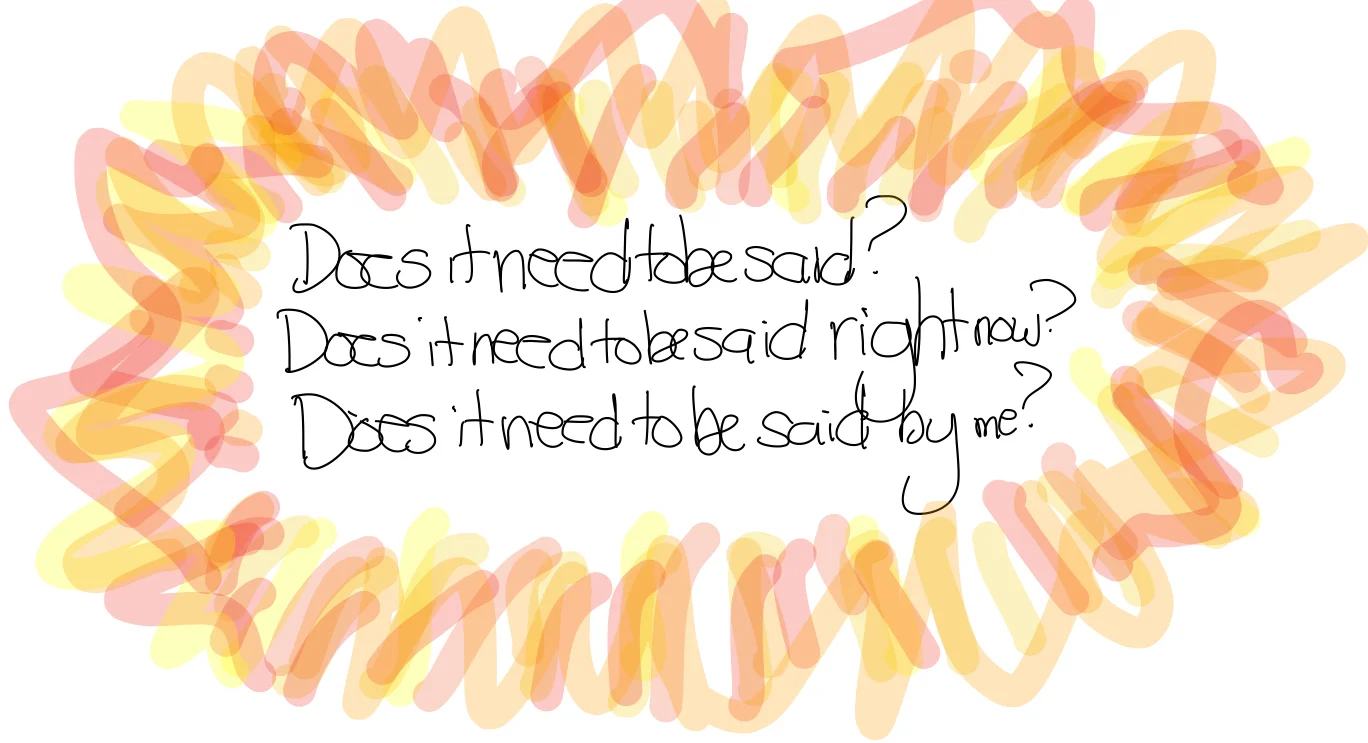 Does it need to be said?
Does it need to be said right now?
Does it need to be said by me?